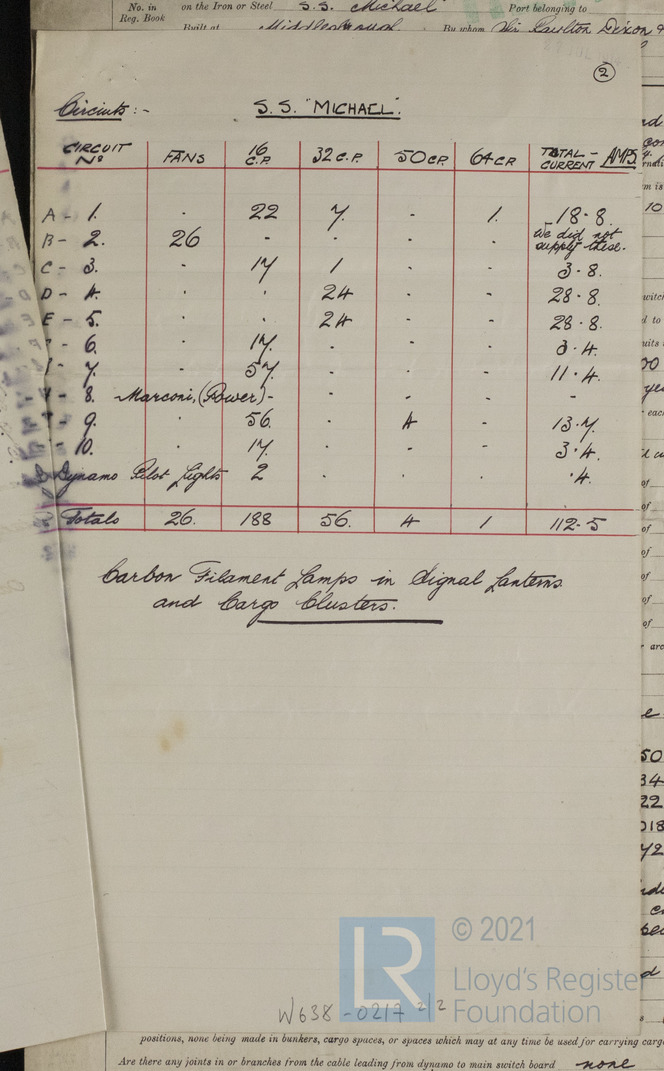 No. in on the Iron or Steel S.S. Michael Port belonging to
Reg. Book
Built at Middlesbrough By whom Sir Raylton Dixon &
2
Circuits :- S.S. "MICHAEL".
CIRCUIT Nº FANS 16 C.P. 32 C.P. 50 C.P. 64 C.P. TOTAL - CURRENT AMPS.
A - 1. - 22 7 - 1. 18.8.
B - 2. 26 - - - - We did not supply these.
C - 3. - 17 1 - - 3.8.
D - 4. - - 24 - - 28.8.
E - 5. - - 24 - - 28.8.
- 6. - 17. - - - 3.4.
- 7. - 57. - - - 11.4.
- 8. Marconi, (Power) - - - - -
- 9. - 56. - 4 - 13.7.
- 10. - 17. - - - 3.4.
Dynamo Pilot Lights 2 - - - .4.
Totals 26. 188 56. 4 1 112.5
Carbon Filament Lamps in Signal Lanterns
and Cargo Clusters.
© 2021
LR
Lloyd's Register
Foundation
W638-0217 2/2
positions, none being made in bunkers, cargo spaces, or spaces which may at any time be used for carrying carg
Are there any joints in or branches from the cable leading from dynamo to main switch board none